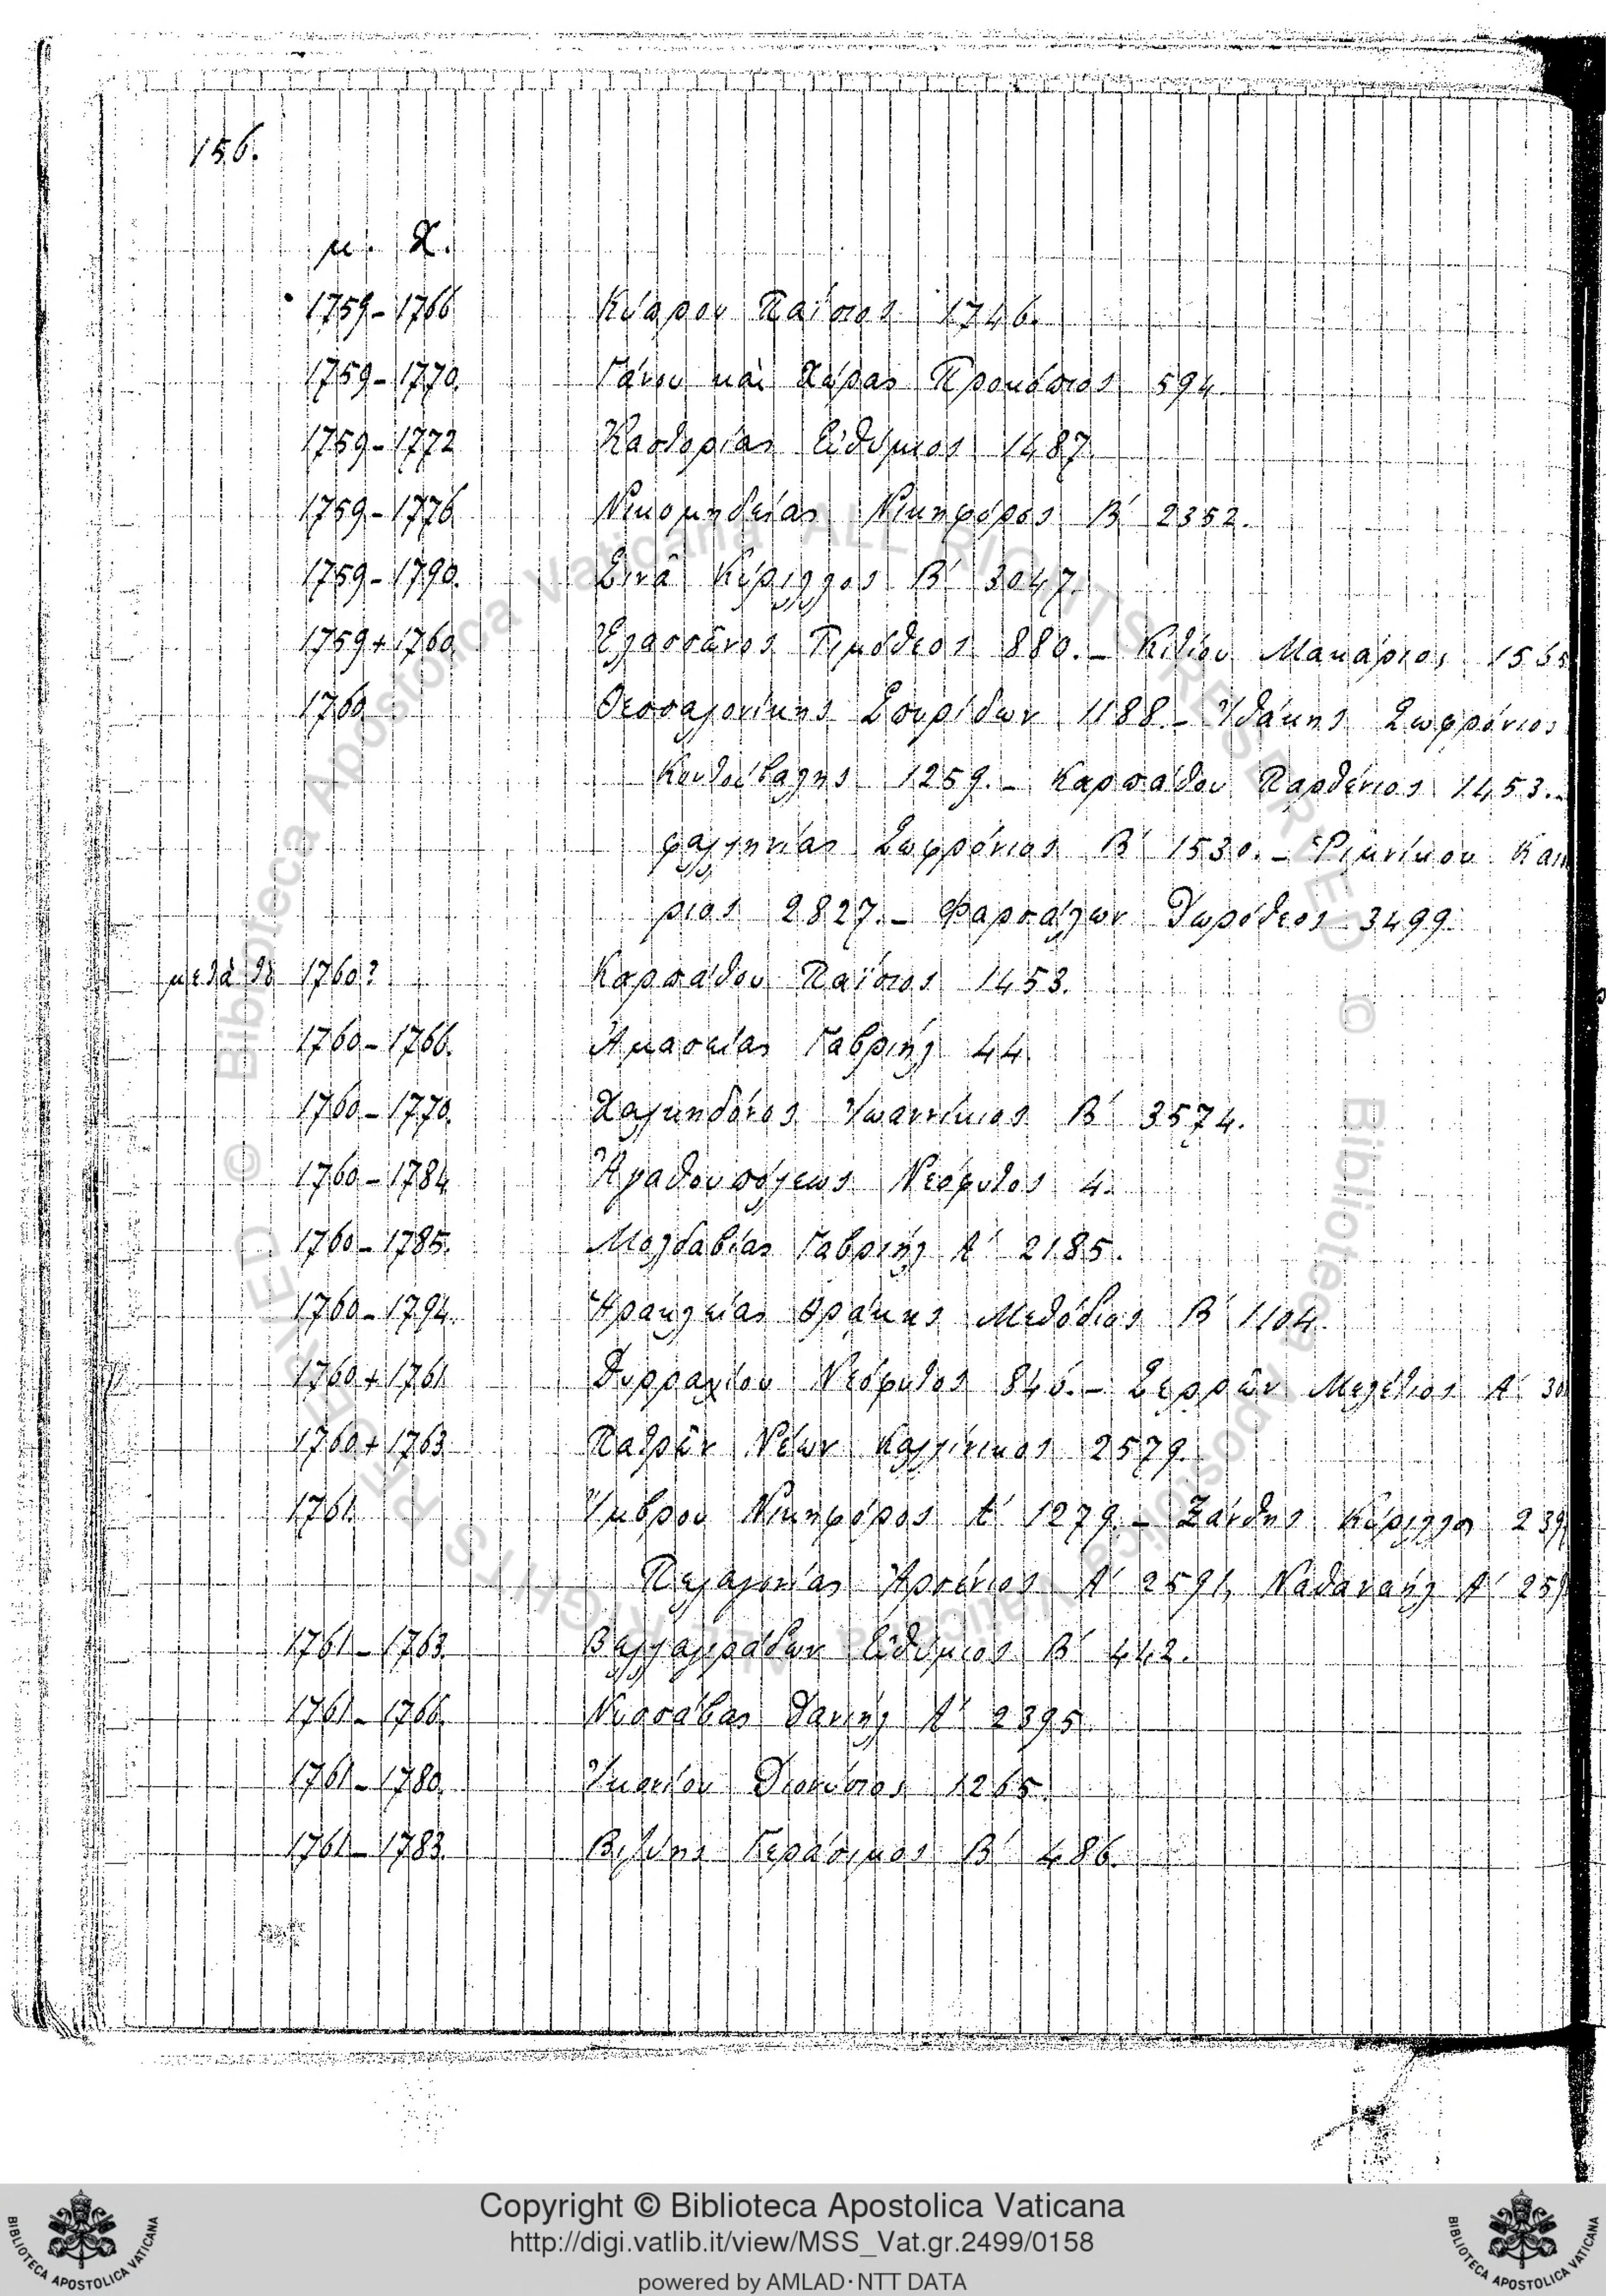 156.
μ. Χ.
1759-1766 Κύπρου Παΐσιος 1746.
1759-1770. Γάνου καὶ Χώρας Προκόπιος 594
1759-1772 Καστορίας Εὐθύμιος 1487.
1759-1776 Νικομηδείας Νικηφόρος Β΄ 2352.
1759-1790. Σινᾶ Κύριλλος Β΄ 3047.
1759+1760 Ἐλασσῶνος Τιμόθεος 880.- Κιτίου Μακάριος 1565
1760 Θεσσαλονίκης Σπυρίδων 1188.- Ἰθάκης Σωφρόνιος
1259.- Καρπάθου Παρθένιος 1453.-
φαλληνίας Σωφρόνιος Β΄ 1530.- Ῥιμνίκου
ριος 2827.- Φαρσάλων Δωρόθεος 3499.
μετὰ τὸ 1760? Καρπάθου Παΐσιος 1453.
1760-1766. Ἀμασείας Γαβριήλ 44
1760-1770. Χαλκηδόνος Ἰωαννίκιος Β΄ 3574.
1760-1784 Ἀγαθουπόλεως Νεόφυτος 4.
1760-1785. Μολδαβίας Γαβριήλ Α΄ 2185.
1760-1794. Ἡρακλείας Θρᾴκης Μεθόδιος Β΄ 1104.
1760+1761 Δυρραχίου Νεόφυτος 846.- Σερρῶν Μελέτιος Α΄ 30
1760+1763 Πατρῶν Νέων Καλλίνικος 2579.
1761 Ἴμβρου Νικηφόρος Α΄ 1279.- Ξάνθης Κύριλλος 239
Πελαγονίας Ἀρσένιος Α΄ 2591, Ναθαναήλ Α΄ 259
1761-1763 Βελλαγράδων Εὐθύμιος Β΄ 442.
1761-1766. Νυσσάβας Δανιήλ Α΄ 2395
1761-1780. Ἰκονίου Διονύσιος 1265.
1761-1783. Βιζύης Γεράσιμος Β΄ 486.
Copyright © Biblioteca Apostolica Vaticana
http://digi.vatlib.it/view/MSS_Vat.gr.2499/0158
powered by AMLAD·NTT DATA
BIBLIOTECA APOSTOLICA VATICANA
BIBLIOTECA APOSTOLICA VATICANA